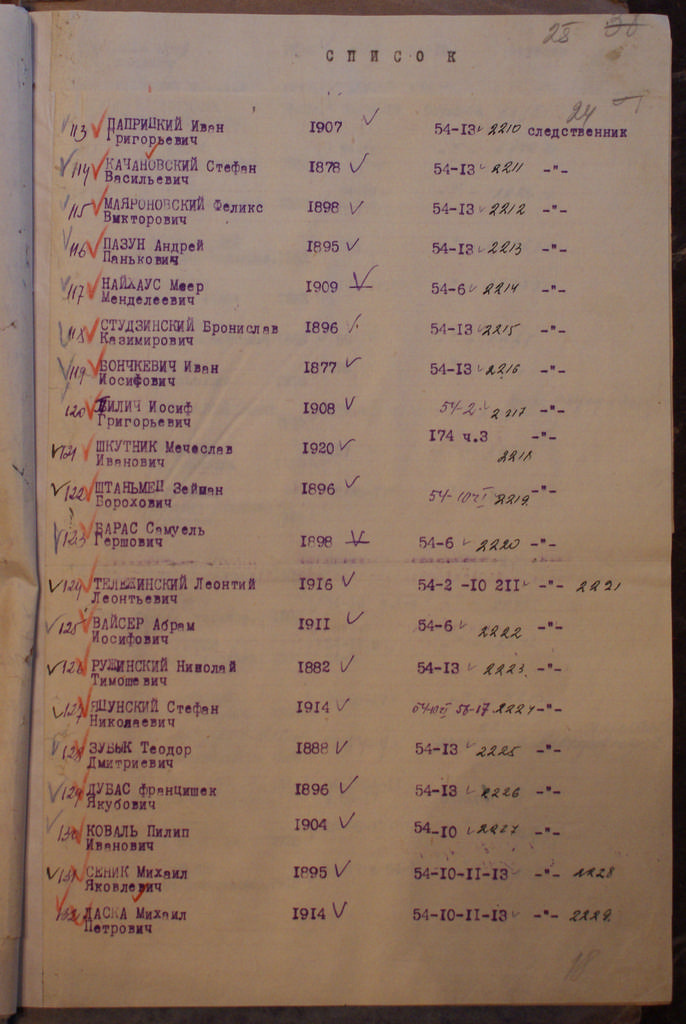 28 38
СПИСОК
24
113 ПАПРИЦКИЙ Иван 1907 54-13 2210 следственник
Григорьевич
114 КАЧАНОВСКИЙ Стефан 1878 54-13 2211 -"-
Васильевич
115 МАЯРОНОВСКИЙ Феликс 1898 54-13 2212 -"-
Викторович
116 ПАЗУН Андрей 1895 54-13 2213 -"-
Панькович
117 НАЙХАУС Меер 1909 54-6 2214 -"-
Менделеевич
118 СТУДЗИНСКИЙ Бронислав 1896 54-13 2215 -"-
Казимирович
119 БОНЧКЕВИЧ Иван 1877 54-13 2216 -"-
Иосифович
120 ПИЛИЧ Иосиф 1908 54-2 2217 -"-
Григорьевич
121 ШКУТНИК Мечеслав 1920 174 ч.3 -"-
Иванович 2218
122 ШТАНЬМЕЦ Зейман 1896 54-10 2219 -"-
Борохович
123 БАРАС Самуель 1898 54-6 2220 -"-
Гершович
124 ТЕЛЕЖИНСКИЙ Леонтий 1916 54-2 -10 2II -"- 2221
Леонтьевич
125 ВАЙСЕР Абрам 1911 54-6 2222 -"-
Иосифович
126 РУЖИНСКИЙ Николай 1882 54-13 2223 -"-
Тимошевич
127 ЯЦУНСКИЙ Стефан 1914 56-17 2224 -"-
Николаевич
128 ЗУБЫК Теодор 1888 54-13 2225 -"-
Дмитриевич
129 ДУБАС Францишек 1896 54-13 2226 -"-
Якубович
130 КОВАЛЬ Пилип 1904 54-10 2227 -"-
Иванович
131 СЕНИК Михаил 1895 54-10-11-13 -"- 2228
Яковлевич
132 ДАСКА Михаил 1914 54-10-11-13 -"- 2229
Петрович
18